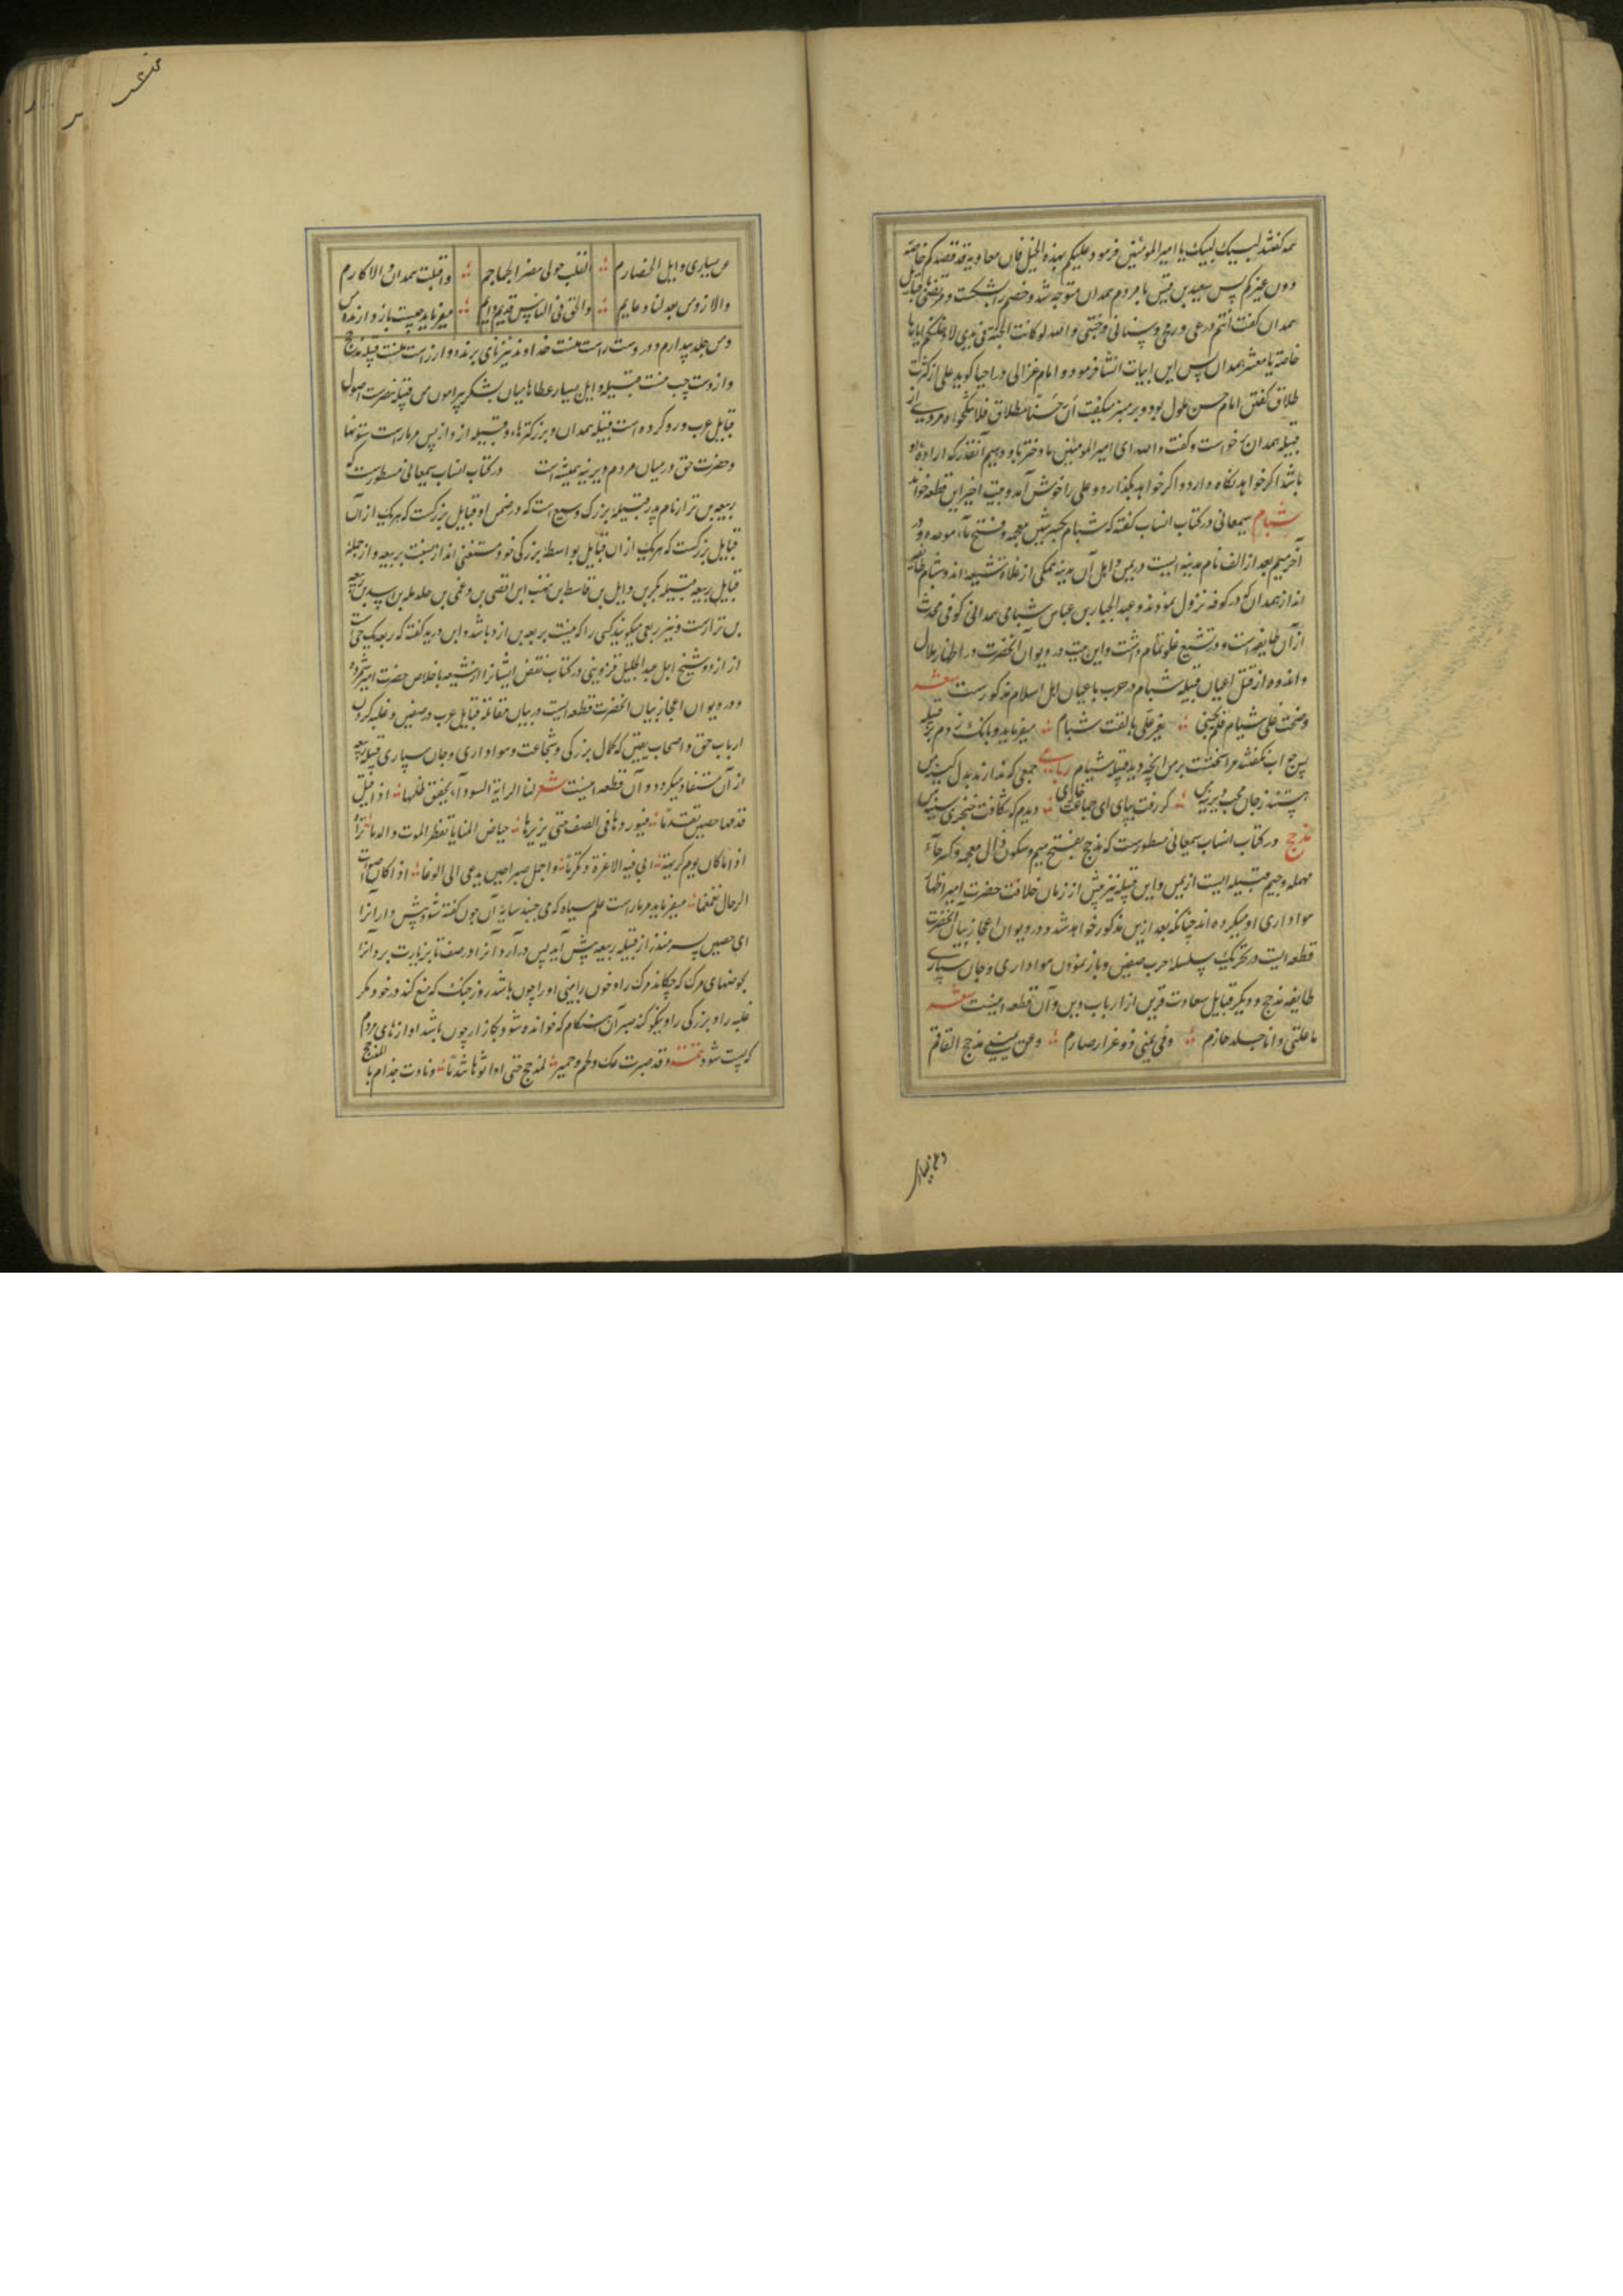 همه گفتند لبیک لبیک یا امیرالمومنین فرمود علیکم بهذه الخیل فان معاویة قد قصدکم خاصة
دون غیرکم پس سعید بن قیس با مردم همدان متوجه شد و خصم را شکست و مرتضی قبایل
همدان گفت انتم درعی و رمحی و سنانی و جنتی و الله لو کانت الجنة فی یدی لادخلتکم ایاها
خاصة یا معشر همدان پس این ابیات انشا فرمود و امام غزالی در احیا گوید علی از کثرت
طلاق گفتن امام حسن ملول بود و بر منبر میگفت ان حسنا مطلاق فلا تنکحوا مردی از
قبیله همدان برخواست و گفت والله ای امیرالمومنین ما دختر باو دهیم آنقدر که اراده او
باشد اگر خواهد نگاه دارد و اگر خواهد بگذارد و علی را خوش آمد و بیت اخیر این قطعه خواند
شبام سمعانی در کتاب انساب گفته که شبام بکسر شین معجمه و فتح باء موحده و در
آخر میم بعد از الف نام مدینه ایست در یمن و اهل آن مدینه همگی از غلاة شیعه اند و شبام طایفه
اند از همدان که در کوفه نزول نمودند و عبد الجبار بن عباس شبامی همدانی کوفی محدث
از آن طایفه است و در تشیع غلو تمام داشت و این بیت در دیوان آنحضرت در اظهار ملال
و اندوه از قتل اعیان قبیله شبام در حرب با عیان اهل اسلام مذکورست شعر
وصحت علی شبام فلم تجبنی یعز علی ما لقت شبام میفرماید و بانک زدم بر قبیله
پس جواب نگفتند مرا سختست بر من انچه دید قبیله شبام رباعی جمعی که ندارند بدل کینه من
هستند زجان محب دیرینه من گر رفت بپای ای جماعت خاری دیدم که شکافت خنجری سینه من
مذحج در کتاب انساب سمعانی مسطورست که مذحج بفتح میم و سکون ذال معجمه و کسر حاء
مهمله و جیم قبیله ایست از یمن و این قبیله نیز پیش از زمان خلافت حضرت امیر اظهار
هواداری او میکرده اند چنانکه بعد ازین مذکور خواهد شد و در دیوان اعجاز بیان آنحضرت
قطعه ایست در تحریک سلسله حرب صفین و باز نمودن هواداری و جان سپاری
طایفه مذحج و دیگر قبایل سعادت قرین از ارباب دین و آن قطعه اینست شعر
ما علتی و انا جلد حازم وفی یمینی ذو غرار صارم وعن یمینی مذحج القماقم
وعن یساری
عن یساری وایل الخضارم القلب حولی مضر الجماجم واقبلت همدان والاکارم
والازد من بعد لنا دعایم والحق فی الناس قدیم دایم میفرماید چیست باز دارنده من
و من جلد بیدارم و در دست راست منست خداوند تیزنای برنده و از راست منست قبیله مذحج
و از دست چپ منست قبیله وایل بسیار عطاها میان لشکر پیرامون من قبیله مضرست اصول
قبایل عرب و رو کرده است قبیله همدان و بزرگترها و قبیله ازد از پس مر ماراست ستونها
و حضرت حق در میان مردم دیرینه همیشه است در کتاب انساب سمعانی مسطورست که
ربیعه بن نزار نام پدر قبیله بزرگ وسیع است که در ضمن او قبایل بزرگست که هریک از آن
قبایل بزرگست که هریک از ان قبایل بواسطه بزرگی خود مستغنی اند از نسبت بربیعه و از جمله
قبایل ربیعه قبیله بکر بن وایل بن قاسط بن هنب ابن افصی بن دعمی بن جدیله بن اسد بن ربیعه
بن نزارست و نیز ربعی میگویند کسی را که نسبت بربیعه بن ازد باشد و ابن درید گفته که ربعه یک حی است
از ازد و شیخ اجل عبد الجلیل قزوینی در کتاب نقض ایشانرا از شیعه با خلاص حضرت امیر شمرده
و در دیوان اعجاز بیان انحضرت قطعه ایست در بیان مقاتله قبایل عرب در صفین و غلبه کردن
ارباب حق و اصحاب یقین که کمال بزرگی و شجاعت و هواداری و جان سپاری قبیله ربیعه
از آن مستفاد میگردد و آن قطعه اینست شعر لنا الرایة السوداء یخفق ظلها اذا قیل
قدمها حصین تقدما فیوردها فی الصف حتی یزیرها حیاض المنایا تقطر الموت والدما تراه
اذا ما کان یوم کریهة ابی فیه الا عزة وتکرما واجمل صبرا حین یدعی الی الوغا اذا کان اصوات
الرجال تغمغما میفرماید مر ماراست علم سیاه که می جنبد سایه آن چون گفته شود پیش دار آنرا
ای حصین پسر منذر از قبیله ربیعه پیش آید پس درآرد آنرا در صف تا بزیارت برد آنرا
بحوضهای مرک که چکاند مرک را و خون را بینی او را چون باشد روز جنک که منع کند در خود مگر
غلبه را و بزرگی را و نیکو کند صبر آن هنگام که خوانده شود بکارزار چون باشد آوازهای مردم
که پست شود تتمه و قد صبرت عک ولخم وحمیر لمذحج حتی اورثوها تندما ونادت جذام یا لمذحج